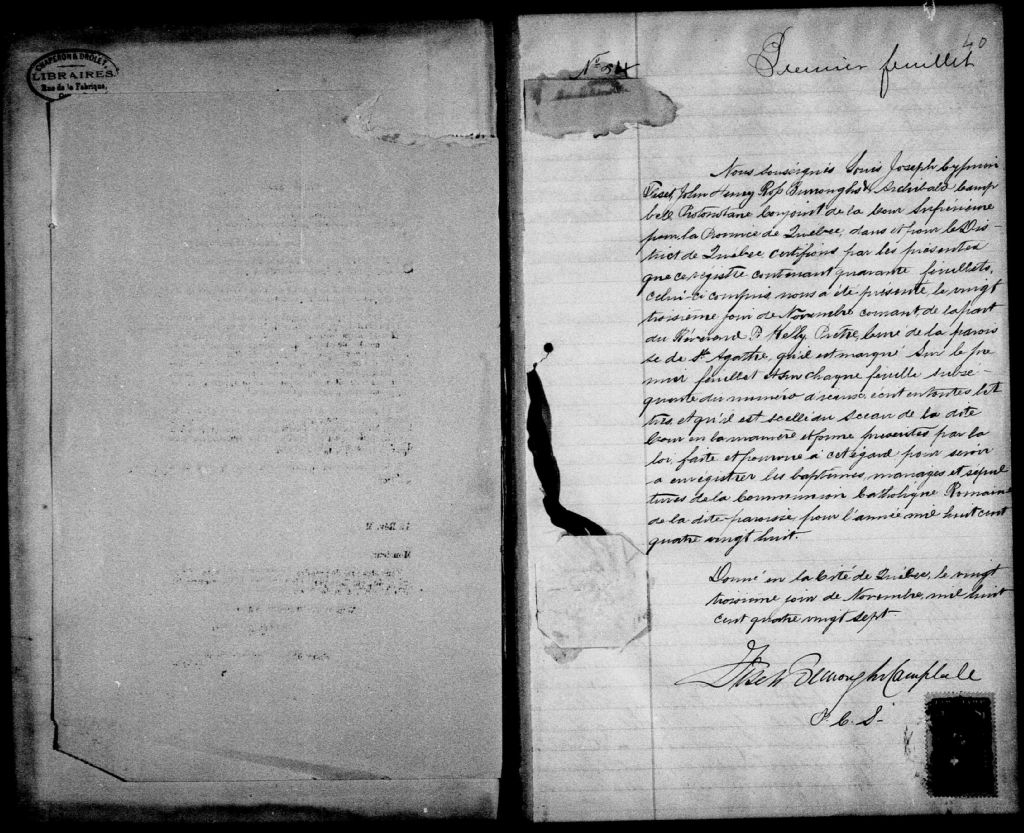 CHAPERON & DROLET,
LIBRAIRES
Rue de la Fabrique,
40
Premier feuillet
Nous soussignés Louis Joseph Cyprien
Fiset, John Henry Ross Burroughs & Archibald Camp
bell Protonotaire Conjoint de la Cour Supérieure
pour la Province de Québec, dans et pour le Dis-
trict de Québec certifions par les présentes
que ce registre contenant quarante feuillets,
celui-ci compris nous a été présenté, le vingt
troisième jour de Novembre courant de la part
du Révérend P. Kelly Prêtre, Curé de la parois
se de Ste Agathe, qu'il est marqué sur le pre
mier feuillet et sur chaque feuille subse-
quente du numéro d'icelui, écrit en toutes let
tres, et qu'il est scellé du Sceau de la dite
Cour en la manière et forme prescrites par la
loi, faite et pourvue à cet égard pour servir
a enrégistrer les baptêmes, mariages et sépul
tures de la Communion Catholique Romaine
de la dite paroisse, pour l'année mil huit cent
quatre vingt huit.
Donné en la Cité de Québec, le vingt
troisième jour de Novembre, mil huit
cent quatre vingt sept
Fiset Burroughs Campbell
P. C. S.
Au Rév. M
Monsieur